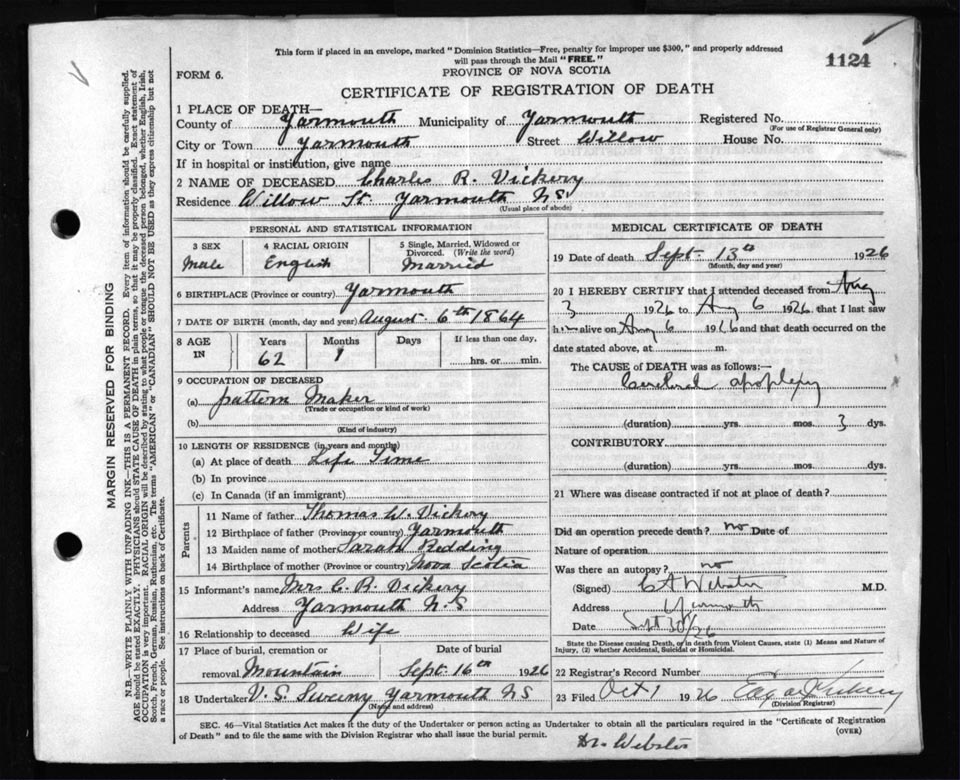 This form if placed in an envelope, marked "Dominion Statistics—Free, penalty for improper use $300," and properly addressed
will pass through the Mail "FREE."
1124
FORM 6.
PROVINCE OF NOVA SCOTIA
CERTIFICATE OF REGISTRATION OF DEATH
1 PLACE OF DEATH—
County of Yarmouth Municipality of Yarmouth Registered No.
(For use of Registrar General only)
City or Town Yarmouth Street Willow House No.
If in hospital or institution, give name
2 NAME OF DECEASED Charles R. Vickery
Residence Willow St. Yarmouth NS
(Usual place of abode)
PERSONAL AND STATISTICAL INFORMATION
3 SEX 4 RACIAL ORIGIN 5 Single, Married, Widowed or
Divorced. (Write the word)
Male English Married
6 BIRTHPLACE (Province or country) Yarmouth
7 DATE OF BIRTH (month, day and year) August 6th 1864
8 AGE IN Years Months Days If less than one day,
62 1 hrs. or min.
9 OCCUPATION OF DECEASED
(a) pattern Maker
(Trade or occupation or kind of work)
(b)
(Kind of industry)
10 LENGTH OF RESIDENCE (in years and months)
(a) At place of death Life Time
(b) In province
(c) In Canada (if an immigrant)
Parents
11 Name of father Thomas W. Vickery
12 Birthplace of father (Province or country) Yarmouth
13 Maiden name of mother Sarah Redding
14 Birthplace of mother (Province or country) Nova Scotia
15 Informant's name Mrs C. R. Vickery
Address Yarmouth N.S
16 Relationship to deceased Wife
17 Place of burial, cremation or Date of burial
removal Mountain Sept. 16th 1926
18 Undertaker V. S. Sweeny Yarmouth NS
(Name and address)
MEDICAL CERTIFICATE OF DEATH
19 Date of death Sept. 13th 1926
(Month, day and year)
20 I HEREBY CERTIFY that I attended deceased from Aug
3 1926 to Aug 6 1926 that I last saw
him alive on Aug 6 1926 and that death occurred on the
date stated above, at m.
The CAUSE of DEATH was as follows:—
Cerebral apoplexy
(duration) yrs. mos. 3 dys.
CONTRIBUTORY
(duration) yrs. mos. dys.
21 Where was disease contracted if not at place of death?
Did an operation precede death? no Date of
Nature of operation
Was there an autopsy? no
(Signed) C A Webster M.D.
Address Yarmouth
Date Sept 30/26
State the Disease causing Death, or in death from Violent Causes, state (1) Means and Nature of
Injury, (2) whether Accidental, Suicidal or Homicidal.
22 Registrar's Record Number
23 Filed Oct 1 1926
(Division Registrar)
SEC. 46—Vital Statistics Act makes it the duty of the Undertaker or person acting as Undertaker to obtain all the particulars required in the "Certificate of Registration
of Death" and to file the same with the Division Registrar who shall issue the burial permit. (OVER)
Dr. Webster
MARGIN RESERVED FOR BINDING
N.B.—WRITE PLAINLY WITH UNFADING INK—THIS IS A PERMANENT RECORD. Every item of information should be carefully supplied.
AGE should be stated EXACTLY. PHYSICIANS should STATE CAUSE OF DEATH in plain terms, so that it may be properly classified. Exact statement of
OCCUPATION is very important. RACIAL ORIGIN will be described by stating to what people or tongue the deceased person belonged, whether English, Irish,
Scotch, French, German, Russian, Ruthenian, etc. The terms "AMERICAN" or "CANADIAN" SHOULD NOT BE USED as they express citizenship but not
a race or people. See instructions on back of Certificate.